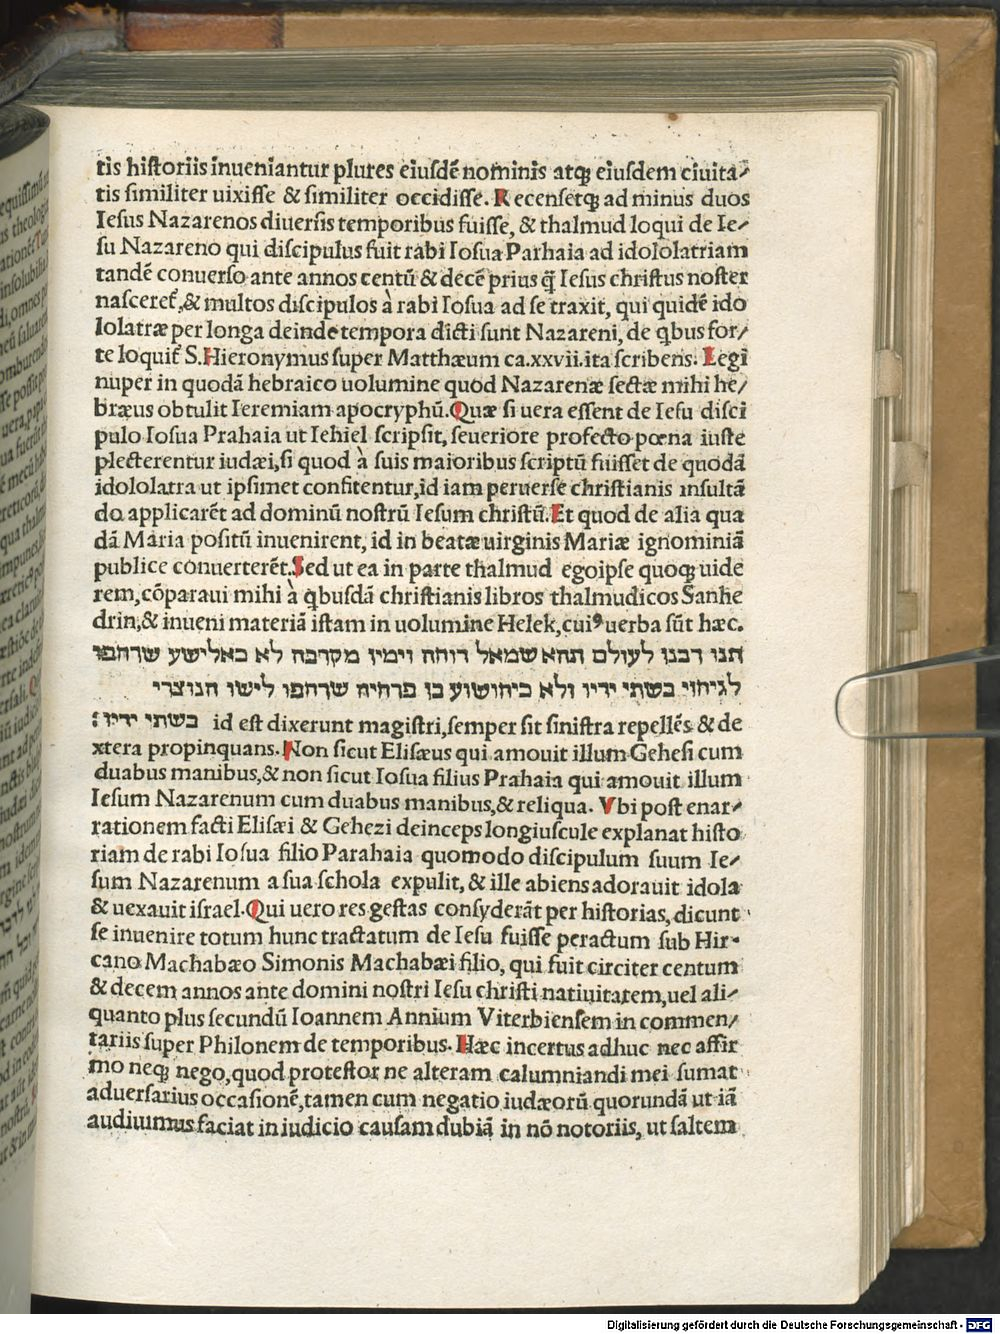 tis historiis inueniantur plures eiusdē nominis atqꝫ eiusdem ciuita⸗
tis similiter uixisse & similiter occidisse. Recensetqꝫ ad minus duos
Iesus Nazarenos diuersis temporibus fuisse, & thalmud loqui de Ie⸗
su Nazareno qui discipulus fuit rabi Iosua Parhaia ad idololatriam
tandē conuerso ante annos centū & decē prius q̄ Iesus christus noster
nasceret᷑,& multos discipulos à rabi Iosua ad se traxit, qui quidē ido
lolatræ per longa deinde tempora dicti sunt Nazareni, de qbus for⸗
te loquit᷑ S.Hieronymus super Matthæum ca.xxvii.ita scribens. Legi
nuper in quodā hebraico uolumine quod Nazarenæ sectæ mihi he⸗
bræus obtulit Ieremiam apocryphū.Quæ si uera essent de Iesu disci
pulo Iosua Prahaia ut Iehiel scripsit, seueriore profecto pœna iuste
plecterentur iudæi,si quod à suis maioribus scriptū fuisset de quodā
idololatra ut ipsimet confitentur,id iam peruerse christianis insultā
do applicarēt ad dominū nostrū Iesum christū.Et quod de alia qua
dā Maria positū inuenirent, id in beatæ uirginis Mariæ ignominiā
publice conuerterēt.Sed ut ea in parte thalmud egoipse quoqꝫ uide
rem,cōparaui mihi à qbusdā christianis libros thalmudicos Sanhe
drin,& inueni materiā istam in uolumine Helek,cuiꝰ uerba sūt hæc.
תנו רבנן לעולם תהא שמאל דוחה וימין מקרבה לא כאלישע שדחפו
לגיחזי בשתי ידיו ולא כיהושוע בן פרחיה שדחפו לישו הנוצרי
בשתי ידיו: id est dixerunt magistri,semper sit sinistra repellēs & de
xtera propinquans. Non sicut Elisæus qui amouit illum Gehesi cum
duabus manibus,& non sicut Iosua filius Prahaia qui amouit illum
Iesum Nazarenum cum duabus manibus,& reliqua. Vbi post enar⸗
rationem facti Elisæi & Gehezi deinceps longiuscule explanat histo
riam de rabi Iosua filio Parahaia quomodo discipulum suum Ie⸗
sum Nazarenum a sua schola expulit, & ille abiens adorauit idola
& uexauit israel.Qui uero res gestas consyderāt per historias, dicunt
se inuenire totum hunc tractatum de Iesu fuisse peractum sub Hir⸗
cano Machabæo Simonis Machabæi filio, qui fuit circiter centum
& decem annos ante domini nostri Iesu christi natiuitatem,uel ali⸗
quanto plus secundū Ioannem Annium Viterbiensem in commen⸗
tariis super Philonem de temporibus. Hæc incertus adhuc nec affir
mo neqꝫ nego,quod protestor ne alteram calumniandi mei sumat
aduersarius occasionē,tamen cum negatio iudæorū quorundā ut iā
audiuimus faciat in iudicio causam dubiā in nō notoriis, ut saltem
Digitalisierung gefördert durch die Deutsche Forschungsgemeinschaft - DFG